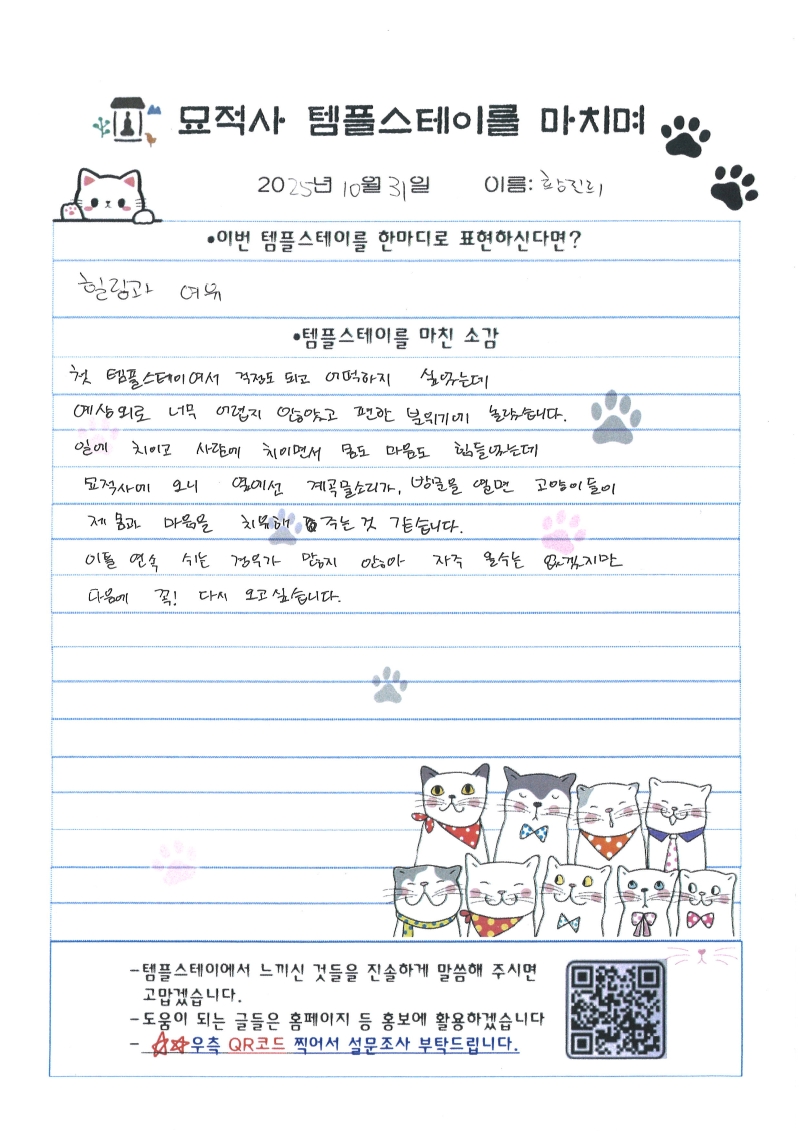 묘적사 템플스테이를 마치며
2025년 10월 31일 이름: 황진리
•이번 템플스테이를 한마디로 표현하신다면?
힐링과 여유
•템플스테이를 마친 소감
첫 템플스테이여서 걱정도 되고 어떡하지 싶었는데
예상외로 너무 어렵지 않았고 편한 분위기에 놀랐습니다.
일에 치이고 사람에 치이면서 몸도 마음도 힘들었는데
묘적사에 오니 옆에선 계곡물소리가, 방문을 열면 고양이들이
제 몸과 마음을 치유해 주는 것 같습니다.
이틀 연속 쉬는 경우가 많지 않아 자주 올수는 없겠지만
다음에 꼭! 다시 오고싶습니다.
-템플스테이에서 느끼신 것들을 진솔하게 말씀해 주시면
고맙겠습니다.
-도움이 되는 글들은 홈페이지 등 홍보에 활용하겠습니다
- ☆☆우측 QR코드 찍어서 설문조사 부탁드립니다.